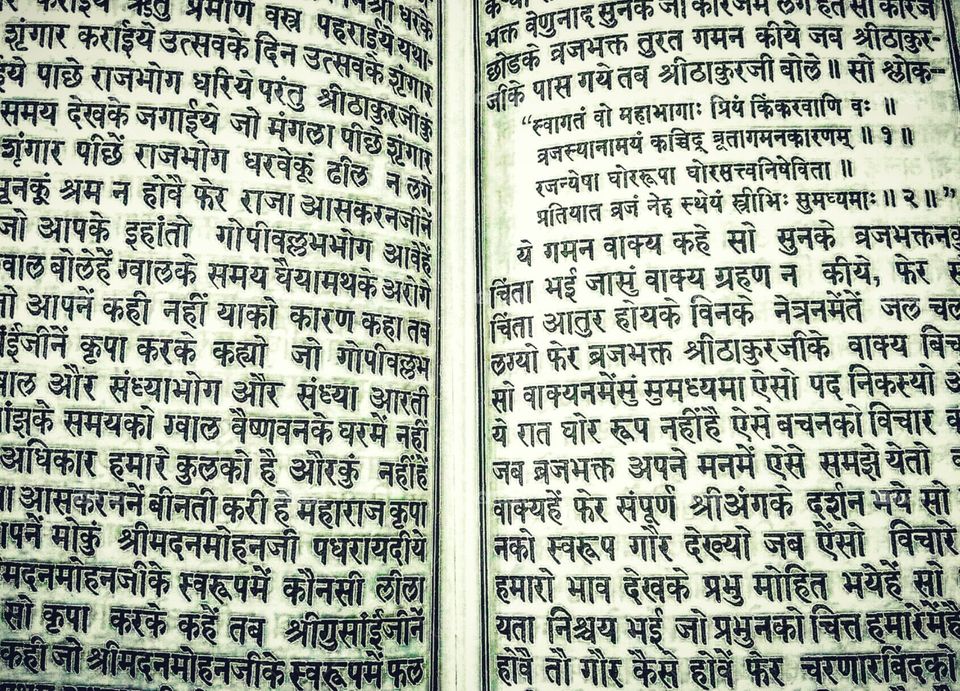 कराईये ऋतु प्रमाण वस्त्र पहराईये यथा-
शृंगार कराईये उत्सवके दिन उत्सवके शृंगार
पाछे राजभोग धरिये परंतु श्रीठाकुरजीकुं
समय देखके जगाईये जो मंगला पीछे शृंगार
शृंगार पीछें राजभोग धरवेकूं ढील न लगे
श्रम न होवै फेर राजा आसकरनजीनें
जो आपके इहांतो गोपीवल्लभभोग आवेहें
ग्वाल बोलेहें ग्वालके समय घैयामथके अरोगे
आपनें कही नहीं याको कारण कहा तब
कृपा करके कह्यो जो गोपीवल्लभ
ग्वाल और संध्याभोग और संध्या आरती
सांझके समयको ग्वाल वैष्णवनके घरमें नहीं
अधिकार हमारे कुलको है औरकुं नहींहे
आसकरननें बीनती करी हे महाराज कृपा
मोकुं श्रीमदनमोहनजी पधरायदीये
मदनमोहनजीके स्वरूपमें कौनसी लीला
सो कृपा करके कहें तब श्रीगुसांईजीनें
कही जो श्रीमदनमोहनजीके स्वरूपमें फल
वेणुनाद सुनके जो कारजमें लगे हते सो कारज
भक्त
छोडके ब्रजभक्त तुरत गमन कीये जब श्रीठाकुर-
जीके पास गये तब श्रीठाकुरजी बोले ॥ सो श्लोक-
“स्वागतं वो महाभागाः प्रियं किंकरवाणि वः ॥
व्रजस्यानामयं कच्चिद् ब्रूतागमनकारणम् ॥ १ ॥
रजन्येषा घोररूपा घोरसत्त्वनिषेविता ॥
प्रतियात व्रजं नेह स्थेयं स्त्रीभिः सुमध्यमाः ॥ २ ॥”
ये गमन वाक्य कहे सो सुनके ब्रजभक्तनकूं
चिंता भई जासुं वाक्य ग्रहण न कीये, फेर
चिंता आतुर होयके विनके नेत्रनमेंतें जल
लग्यो फेर ब्रजभक्त श्रीठाकुरजीके वाक्य
सो वाक्यनमेंसुं सुमध्यमा ऐसो पद निकस्यो
ये रात घोर रूप नहींहै ऐसे बचनको विचार
जब ब्रजभक्त अपने मनमें ऐसे समझे येतो
वाक्यहें फेर संपूर्ण श्रीअंगके दर्शन भये सो
नको स्वरूप गौर देख्यो जब ऐंसो विचारे
हमारो भाव देखके प्रभु मोहित भयेहें सो
यता निश्चय भई जो प्रभुनको चित्त हमारेमेंहै
होवै तौ गौर कैसे होवें फेर चरणारविंदको